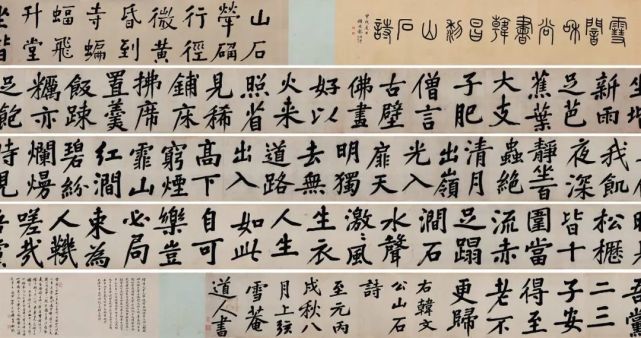 雪闇和尚書韓昌黎山石詩
山石
犖确
行徑
微黄
昏到
寺蝙
蝠飛
升堂
坐階
坐階
新雨
足芭
蕉葉
大支
子肥
僧言
古壁
佛畫
好以
火来
照省
見稀
鋪床
拂席
置羹
飯踈
糲亦
足飽
我飢
夜深
靜卧百
蟲絶
清月
出嶺
光入
扉天
明獨
去無
道路
出入
高下
窮煙
霏山
紅澗
碧紛
爛熳
時見
時見
松櫪
皆十
圍當
流赤
足蹋
澗石
水聲
激風
生衣
人生
如此
自可
樂豈
必局
束為
人鞿
嗟哉
吾黨
吾黨
二三
子安
得至
老不
更歸
右韓文
公山石
詩
至元丙
戌秋八
月上弦
雪菴
道人書